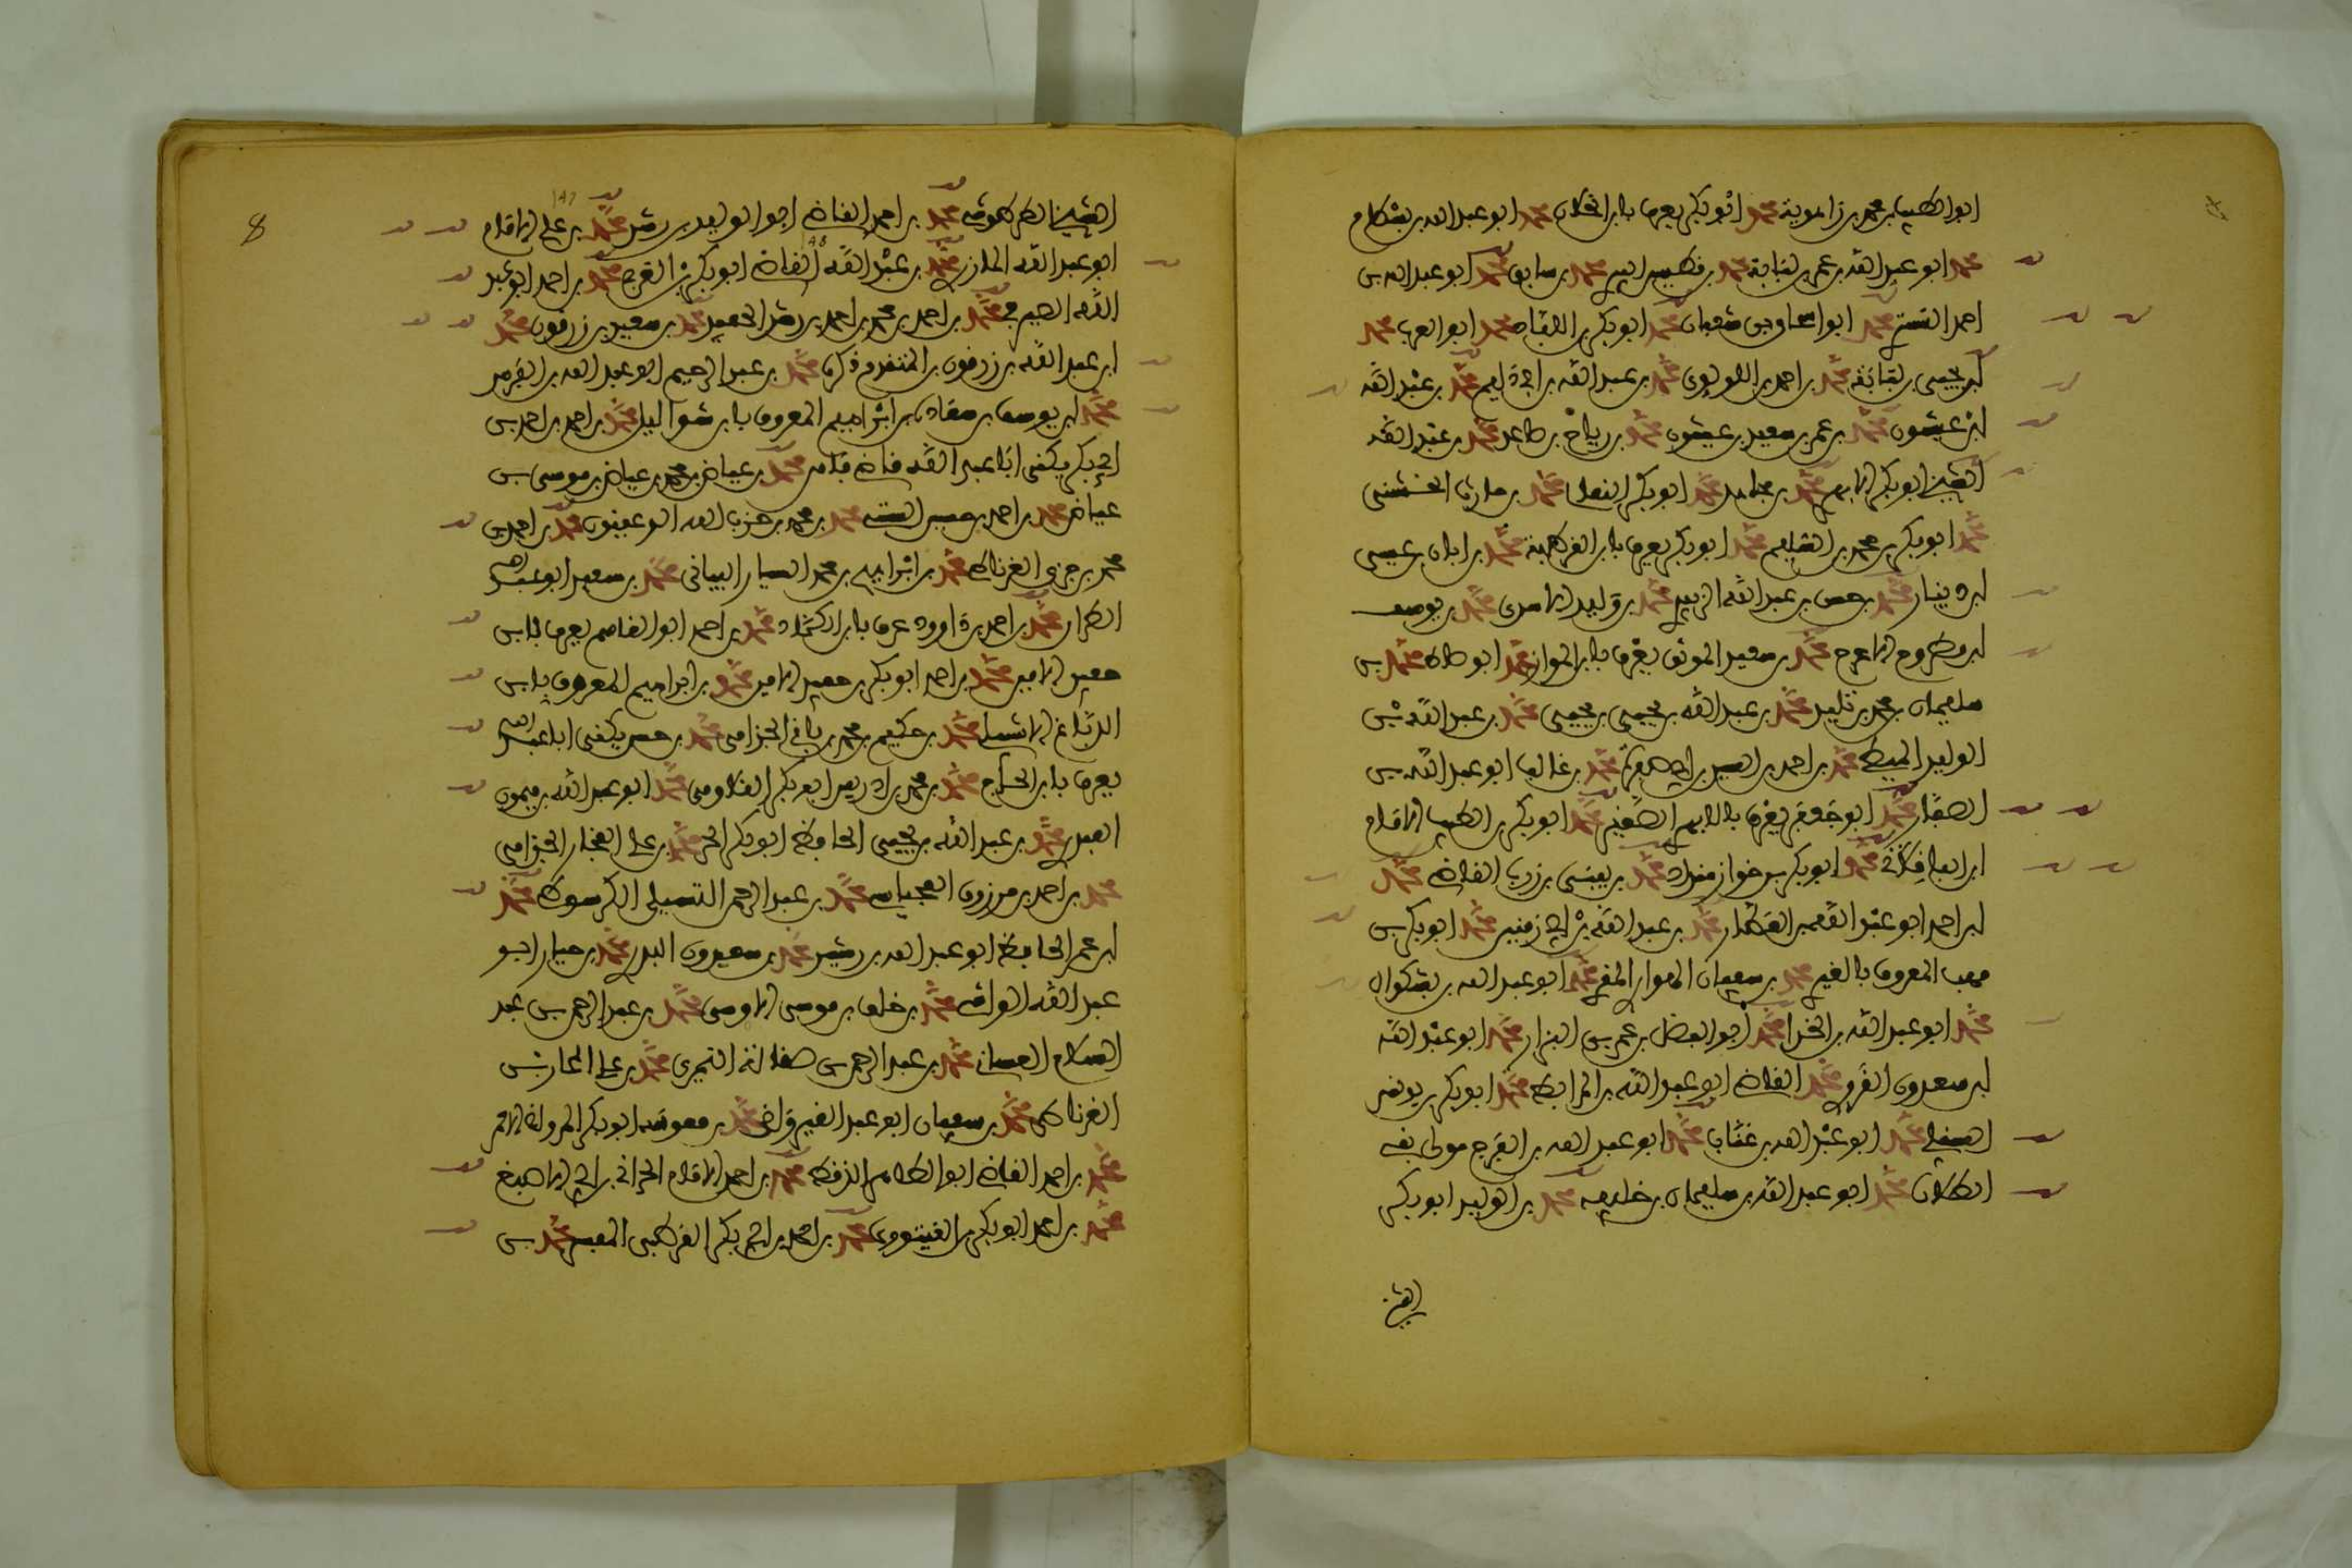 ابو الطيب بن محمد بن زالمويه محمد ابو بكر يعرف بابن الخلال محمد ابو عبد الله بن بسطام
محمد ابو عبد الله بن عمر بن لبابة محمد بن فطيس البير محمد بن سابق محمد ابو عبد الله بن
احمد التستري محمد ابو اسحاق بن شعبان محمد ابو بكر بن اللباد محمد ابو العرب محمد
بن يحيى بن لبابة محمد بن احمد بن اللؤلؤي محمد بن عبد الله بن ابي دليم محمد بن عبد الله
بن عيشون محمد بن عمر بن سعيد بن عيشون محمد بن رباح بن صاعد محمد بن عبد الله
الشيخ ابو بكر الابهري محمد بن مجاهد محمد ابو بكر النعالي محمد بن حارث الخشني
محمد ابو بكر بن محمد بن السليم محمد ابو بكر يعرف بابن القوطية محمد بن ابان بن عيسى
بن دينار محمد بن حسن بن عبد الله الزبيدي محمد بن وليد الاموي محمد بن يوسف
بن مطروح الاعرج محمد بن سعيد الموثق يعرف بابن المواز محمد ابو طالب محمد بن
سليمان بن محمد بن تليد محمد بن عبد الله بن يحيى بن يحيى محمد بن عبد الله بن
الوليد المعيطي محمد بن احمد بن اسيد بن ابي صفرة محمد بن غالب ابو عبد الله بن
الصفار محمد ابو جعفر يعرف بالابهري الصغير محمد ابو بكر بن الطيب الامام
ابن الباقلاني محمد ابو بكر بن خواز منداد محمد بن يبقى بن زرب القاضي محمد
بن احمد ابو عبد الله بن العطار محمد بن عبد الله بن ابي زمنين محمد ابو بكر بن
موهب المعروف بالقبري محمد بن سفيان الهواري المقري محمد ابو عبد الله بن بشكوال
محمد ابو عبد الله بن الحذا محمد ابو الفضل بن عمروس البزار محمد ابو عبد الله
بن سعدون القروي محمد القاضي ابو عبد الله بن المرابط محمد ابو بكر بن يونس
الصقلي محمد ابو عبد الله بن عتاب محمد ابو عبد الله بن الفرج مولى بني
الطلاع محمد ابو عبد الله بن سليمان بن خليفة محمد بن الوليد ابو بكر
الشيخ
8
الشيخ الطرطوشي محمد بن احمد القاضي ابو الوليد بن رشد محمد بن علي الامام
ابو عبد الله المازري محمد بن عبد الله القاضي ابو بكر بن العربي محمد بن احمد ابو عبد
الله الصيرفي محمد بن احمد بن محمد بن احمد بن رشد الحفيد محمد بن سعيد بن زرقون محمد
بن عبد الله بن زرقون بن المتقدم ذكره محمد بن عبد الرحيم ابو عبد الله بن الفرس
محمد بن يوسف بن سعادة محمد بن ابراهيم المعروف بابن شق الليل محمد بن احمد بن احمد بن
ابي بكر يكنى ابا عبد الله قاضي محمد بن عياض بن محمد بن عياض بن موسى بن
عياض محمد بن احمد بن محمد بن حزب الله ابو عفيون محمد بن احمد بن
محمد بن جزي الغرناطي محمد بن ابراهيم بن محمد السيار البياني محمد بن سعيد ابو عبد الله
الطراز محمد بن احمد بن داوود عرف بابن الكماد محمد بن احمد ابو القاسم يعرف بابن
حفيد الامين محمد بن احمد ابو بكر بن حفيد الامين محمد بن ابراهيم المعروف بابن
الدباغ الاشبيلي محمد بن حكيم بن محمد بن باق الجذامي محمد بن حسن يكنى ابا عبد الله
يعرف بابن الحاج محمد بن محمد بن ادريس ابو بكر القللوسي محمد ابو عبد الله بن ميمون
العبدري محمد بن عبد الله بن يحيى الحافظ ابو بكر محمد بن علي الفخار الجذامي
محمد بن احمد بن مرزوق العجيسي محمد بن عبد الرحمن التسيلي الكرسوطي محمد
بن عمر الحافظ ابو عبد الله بن رشيد محمد بن سعيد محمد بن جابر ابو
عبد الله الوادي محمد بن خلف بن موسى الاوسي محمد بن عبد الرحمن بن عبد
السلام الغساني محمد بن عبد الرحمن بن النميري محمد بن علي المحارب
الغرناطي محمد بن سعيد ابو عبد محمد بن ابو بكر
محمد بن احمد القاضي ابو الطاهر محمد بن احمد الامام بن ابي الاصبغ
محمد بن احمد ابو بكر محمد بن احمد بن ابي بكر القرطبي المفسر محمد بن